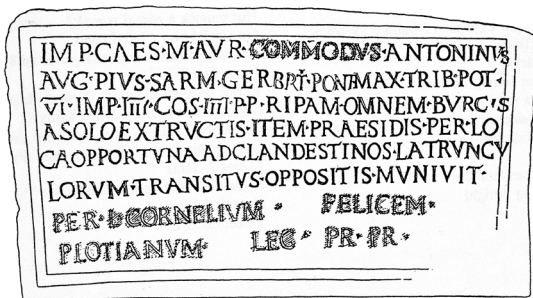 IMP·CAES·M·AVR·COMMODVS·ANTONINVS
AVG·PIVS·SARM·GER·BRT·PONT·MAX·TRIB·POT·
VI·IMP·IIII·COS·IIII·P·P·RIPAM·OMNEM·BVRGIS
ASOLO EXTRVCTIS·ITEM·PRAESIDIS·PER·LO
CA OPPORTVNA AD CLANDESTINOS·LATRVNCV
LORVM·TRANSITVS·OPPOSITIS·MVNIVIT·
PER·L·CORNELIVM· FELICEM·
PLOTIANVM· LEG· PR·PR·